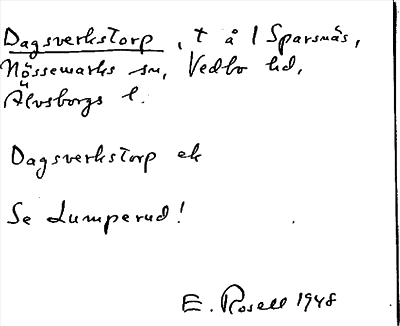 Dagsverkstorp, t å 1 Sparsnäs,
Nössemarks sn, Vedbo hd,
Älvsborgs l.
Dagsverkstorp ek
Se Lumperud!
E. Rosell 1948